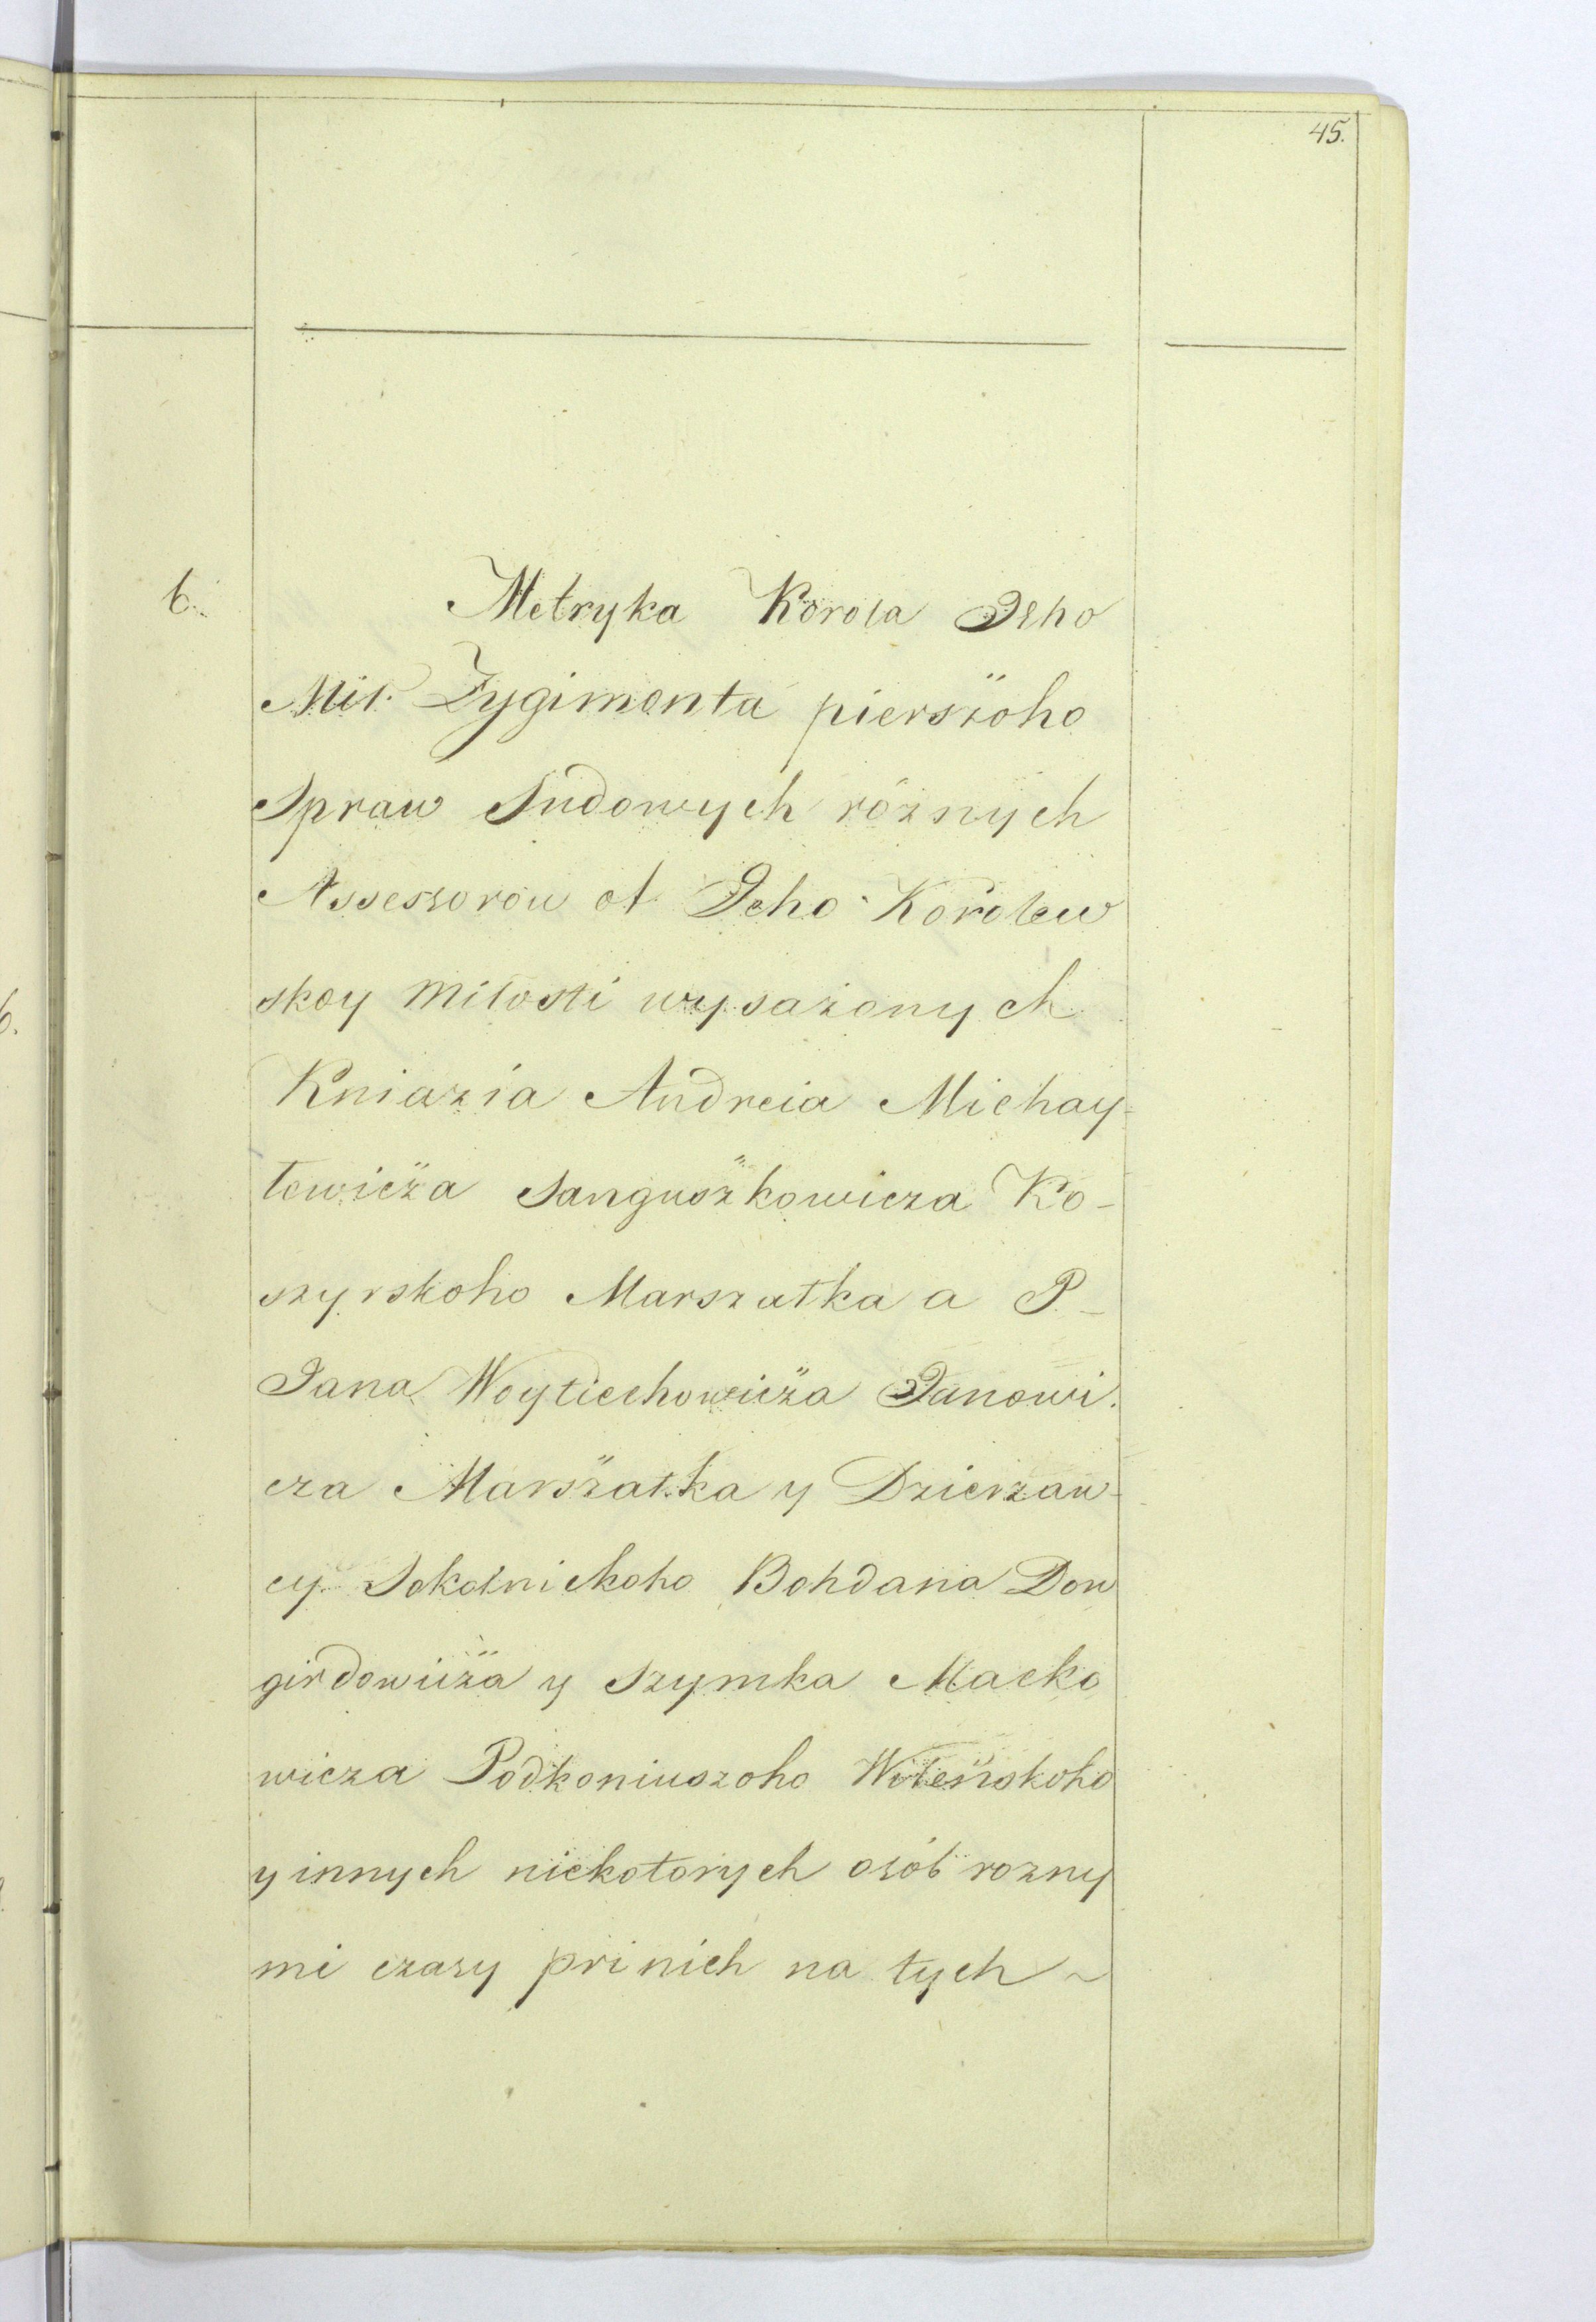 45.
6. Metryka Korola Jeho
Mił. Zygimonta pierszoho
Spraw Sudowych róznych
Assessorow ot Jeho Korolew
skoy Miłosti wysażonych
Kniazia Andreia Michay-
łowicza Sanguszkowicza Ko-
szyrskoho Marszałka a P
Jana Woytiechowicza Janowi.
cza Marszałka y Dzierzaw-
cy Sokolnickoho Bohdana Dow
girdowicza y Szymka Macko
wicza Podkoniuszoho Wileńskoho
y innych niekotorych osób rozny
mi czasy pri nich na tych ~